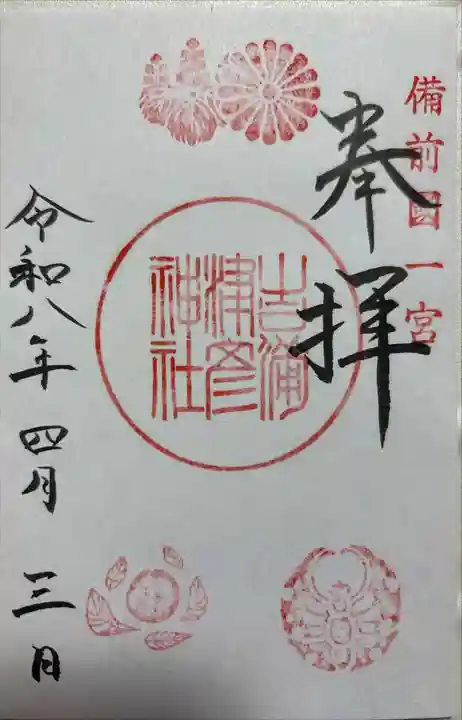 備前國一宮
奉拝
吉備
津彦
神社
令和八年 四月 三日